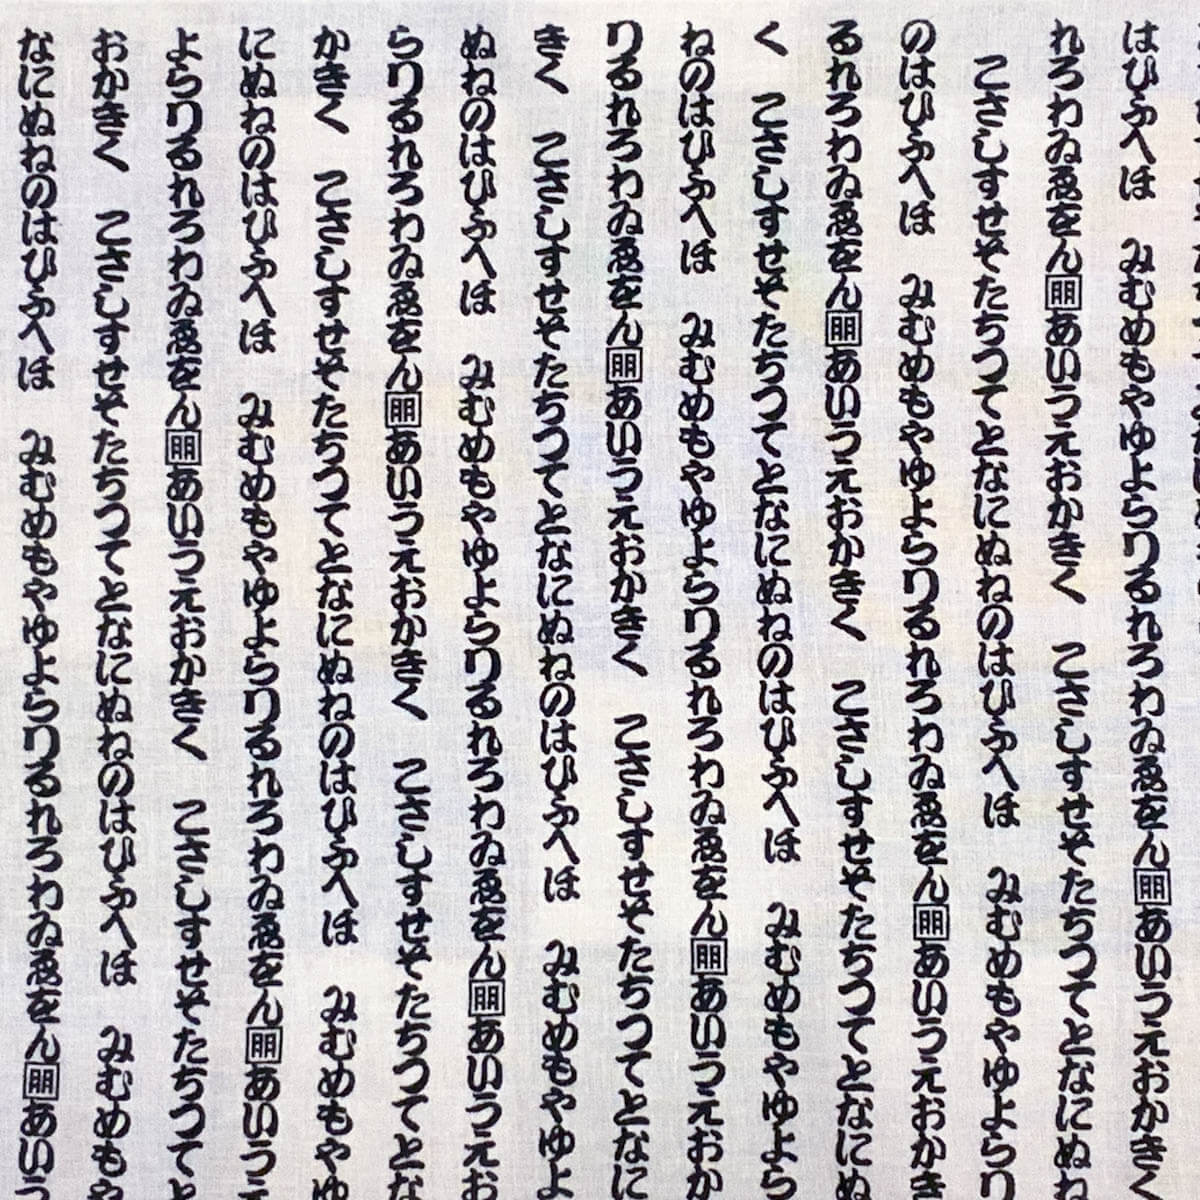 はひふへほ　みむめもやゆよらりるれろわゐゑをん朋あいうえおかきく
れろわゐゑをん朋あいうえおかきく　こさしすせそたちつてとなにぬね
こさしすせそたちつてとなにぬねのはひふへほ　みむめもやゆよらり
のはひふへほ　みむめもやゆよらりるれろわゐゑをん朋あいうえおかき
るれろわゐゑをん朋あいうえおかきく　こさしすせそたちつてとなにぬ
く　こさしすせそたちつてとなにぬねのはひふへほ　みむめもやゆよら
ねのはひふへほ　みむめもやゆよらりるれろわゐゑをん朋あいうえおか
りるれろわゐゑをん朋あいうえおかきく　こさしすせそたちつてとなに
きく　こさしすせそたちつてとなにぬねのはひふへほ　みむめもやゆよ
ぬねのはひふへほ　みむめもやゆよらりるれろわゐゑをん朋あいうえお
らりるれろわゐゑをん朋あいうえおかきく　こさしすせそたちつてとな
かきく　こさしすせそたちつてとなにぬねのはひふへほ　みむめもやゆ
にぬねのはひふへほ　みむめもやゆよらりるれろわゐゑをん朋あいうえ
よらりるれろわゐゑをん朋あいうえおかきく　こさしすせそたちつてと
おかきく　こさしすせそたちつてとなにぬねのはひふへほ　みむめもや
なにぬねのはひふへほ　みむめもやゆよらりるれろわゐゑをん朋あいう